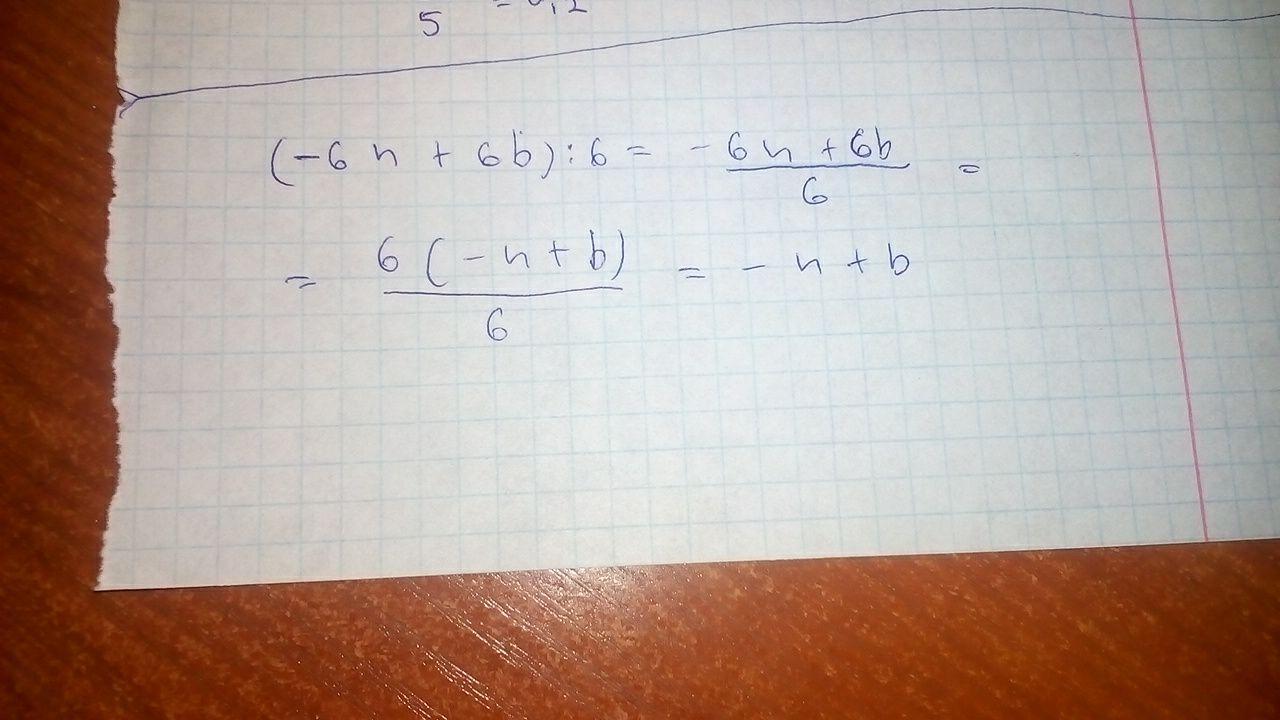 5
(-6n + 6b) : 6 = - 6n + 6b / 6 =
= 6 (-n + b) / 6 = - n + b